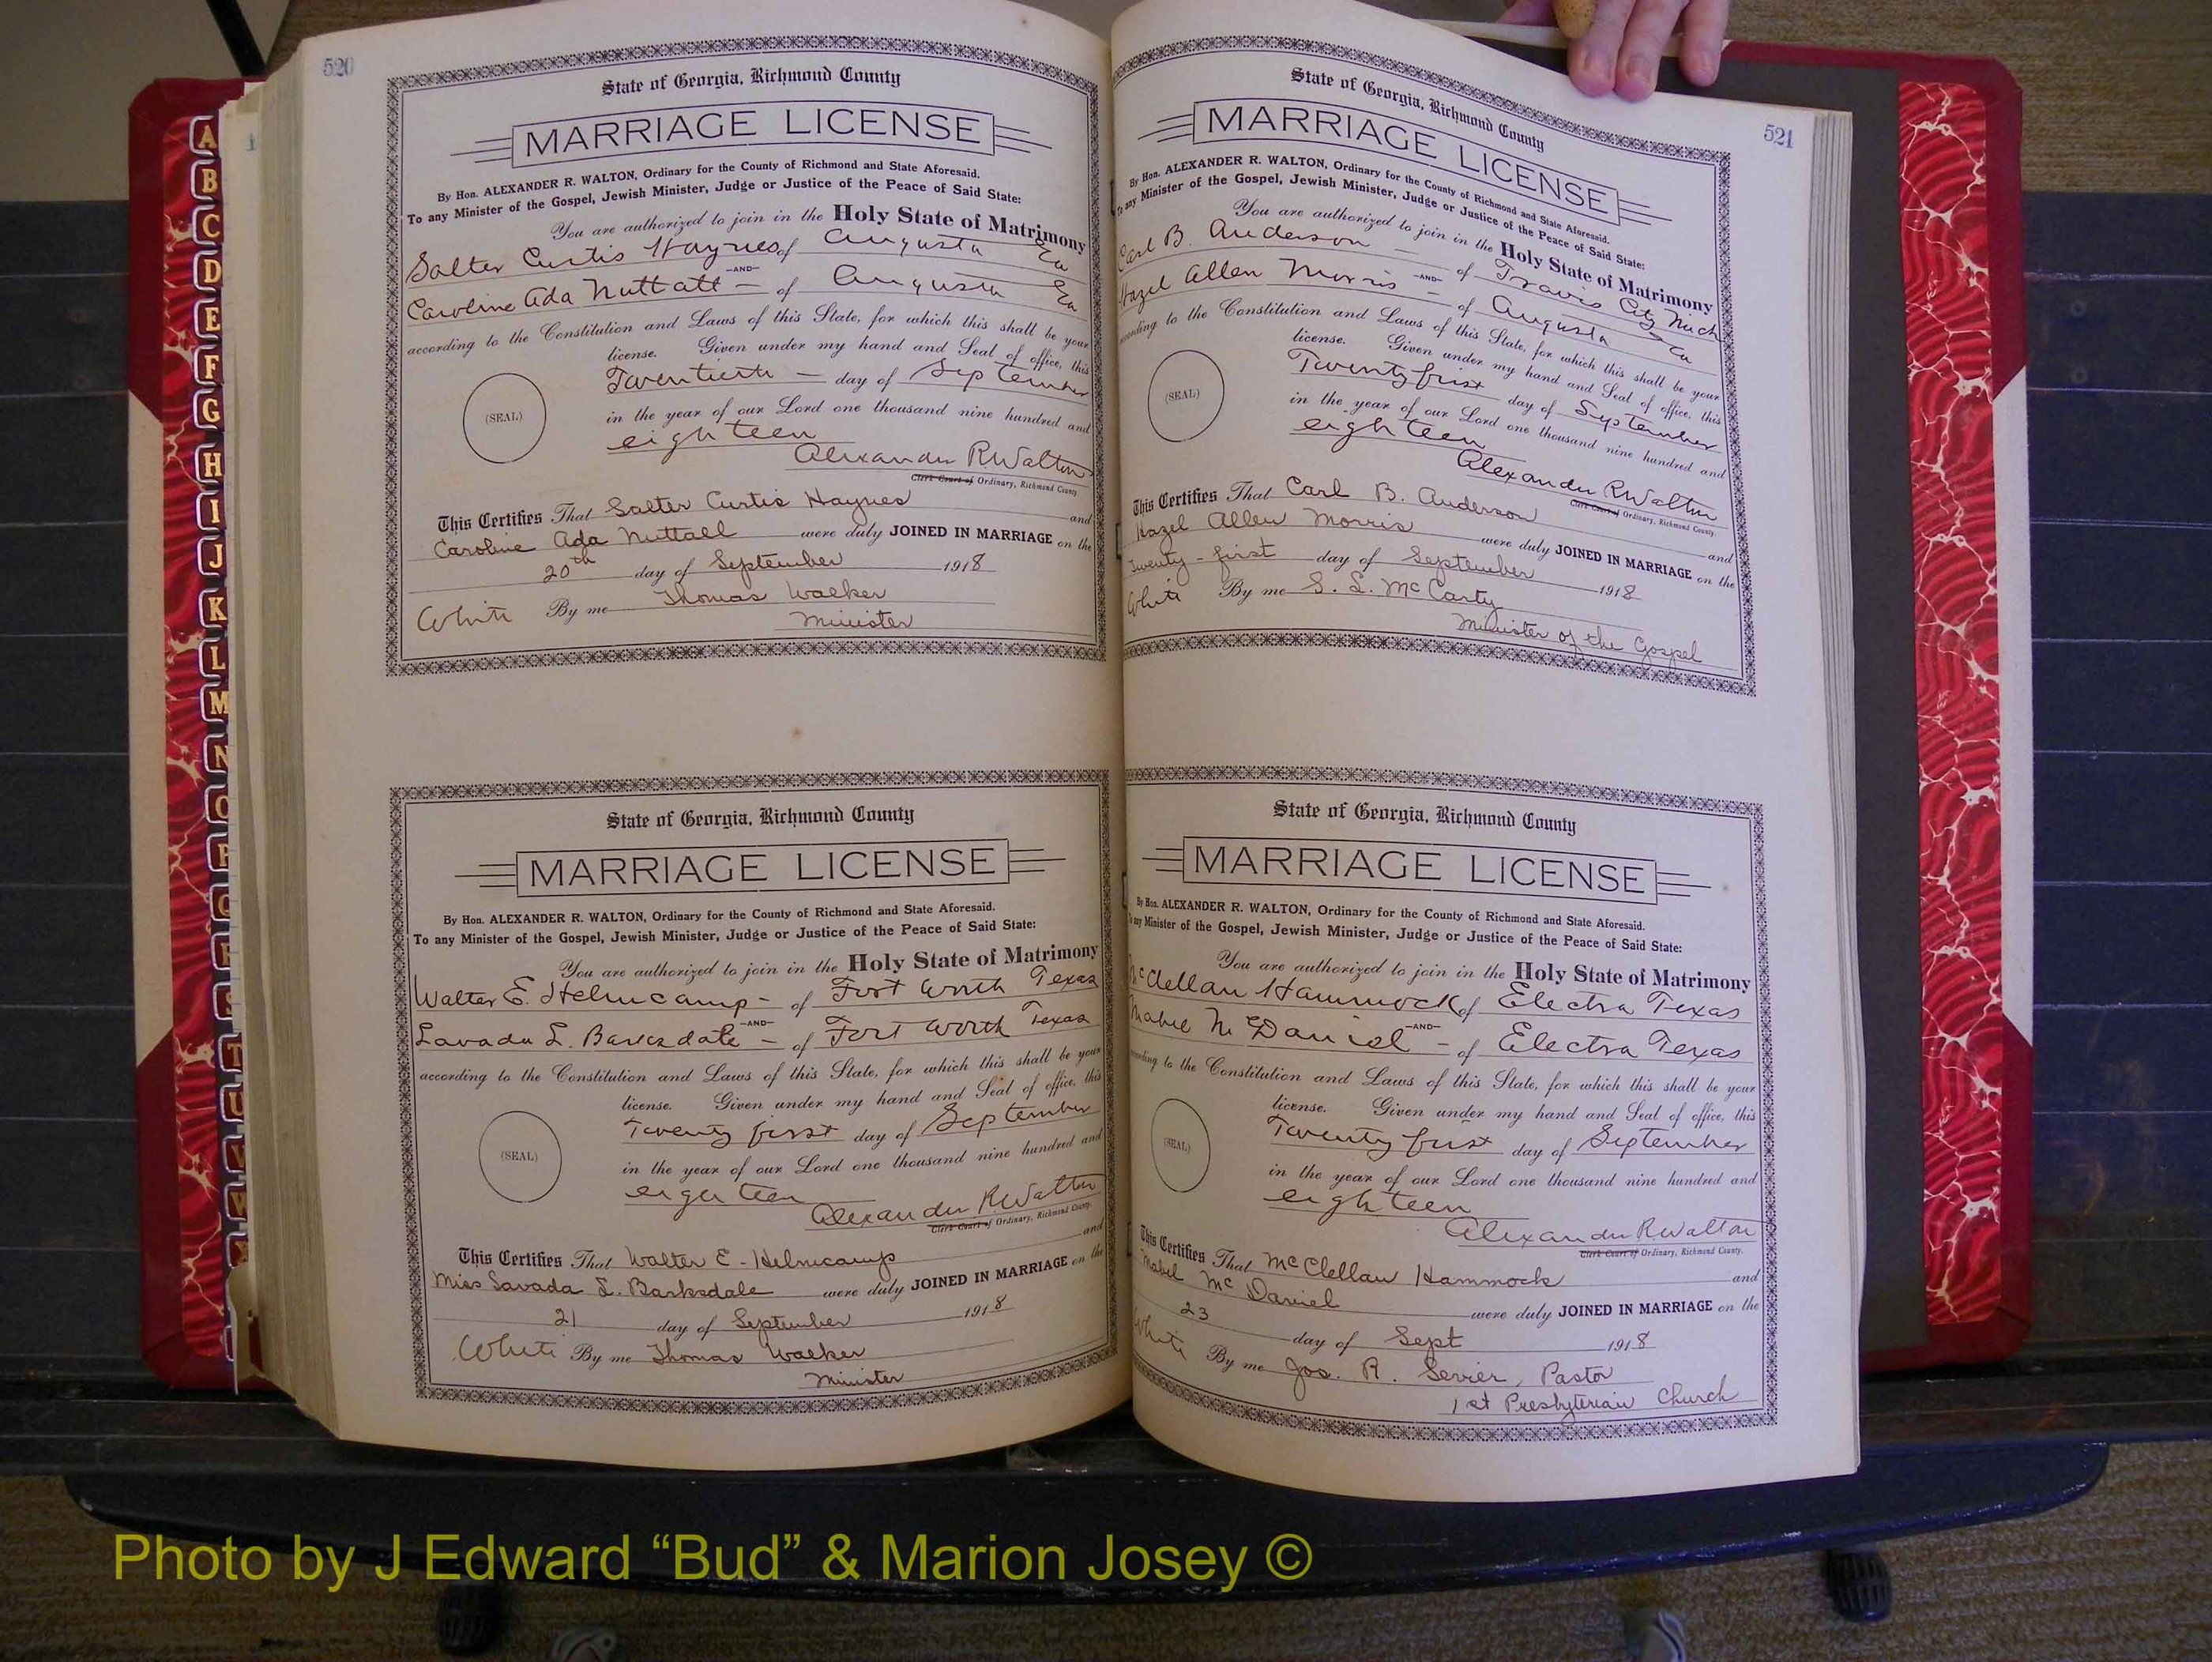 520
State of Georgia, Richmond County
MARRIAGE LICENSE
By Hon. ALEXANDER R. WALTON, Ordinary for the County of Richmond and State Aforesaid.
To any Minister of the Gospel, Jewish Minister, Judge or Justice of the Peace of Said State:
You are authorized to join in the Holy State of Matrimony
Salter Curtis Haynes of Augusta Ga
—AND—
Caroline Ada Nuttall — of Augusta Ga
according to the Constitution and Laws of this State, for which this shall be your
license. Given under my hand and Seal of office, this
Twentieth — day of September
(SEAL)
in the year of our Lord one thousand nine hundred and
eighteen
Alexander R Walton
Clerk Court of Ordinary, Richmond County
This Certifies That Salter Curtis Haynes and
Caroline Ada Nuttall were duly JOINED IN MARRIAGE on the
20th day of September 1918
White By me Thomas Walker
Minister
State of Georgia, Richmond County
MARRIAGE LICENSE
By Hon. ALEXANDER R. WALTON, Ordinary for the County of Richmond and State Aforesaid.
To any Minister of the Gospel, Jewish Minister, Judge or Justice of the Peace of Said State:
You are authorized to join in the Holy State of Matrimony
Walter E. Helmcamp - of Fort Worth Texas
—AND—
Lavada L. Barksdale - of Fort Worth Texas
according to the Constitution and Laws of this State, for which this shall be your
license. Given under my hand and Seal of office, this
Twenty first day of September
(SEAL)
in the year of our Lord one thousand nine hundred and
eighteen
Alexander R. Walton
Clerk Court of Ordinary, Richmond County.
This Certifies That Walter E. Helmcamp and
Miss Lavada L. Barksdale were duly JOINED IN MARRIAGE on the
21 day of September 1918
White By me Thomas Walker
Minister
521
State of Georgia, Richmond County
MARRIAGE LICENSE
By Hon. ALEXANDER R. WALTON, Ordinary for the County of Richmond and State Aforesaid.
To any Minister of the Gospel, Jewish Minister, Judge or Justice of the Peace of Said State:
You are authorized to join in the Holy State of Matrimony
Carl B. Anderson — of Travis City Mich
—AND—
Hazel Allen Morris - of Augusta Ga
according to the Constitution and Laws of this State, for which this shall be your
license. Given under my hand and Seal of office, this
Twenty first day of September
(SEAL)
in the year of our Lord one thousand nine hundred and
eighteen
Alexander R Walton
Clerk Court of Ordinary, Richmond County.
This Certifies That Carl B. Anderson and
Hazel Allen Morris were duly JOINED IN MARRIAGE on the
Twenty-first day of September 1918
White By me S. L. McCarty
Minister of the Gospel
State of Georgia, Richmond County
MARRIAGE LICENSE
By Hon. ALEXANDER R. WALTON, Ordinary for the County of Richmond and State Aforesaid.
To any Minister of the Gospel, Jewish Minister, Judge or Justice of the Peace of Said State:
You are authorized to join in the Holy State of Matrimony
McClellan Hammock of Electra Texas
—AND—
Mabel McDaniel - of Electra Texas
according to the Constitution and Laws of this State, for which this shall be your
license. Given under my hand and Seal of office, this
Twenty first day of September
(SEAL)
in the year of our Lord one thousand nine hundred and
eighteen
Alexander R. Walton
Clerk Court of Ordinary, Richmond County.
This Certifies That McClellan Hammock and
Mabel McDaniel were duly JOINED IN MARRIAGE on the
23 day of Sept 1918
White By me Jos. R. Sevier, Pastor
1st Presbyterian Church
A
B
C
D
E
F
G
H
I
J
K
L
M
N
O
P
Q
R
S
T
U
V
W
Photo by J Edward “Bud” & Marion Josey ©